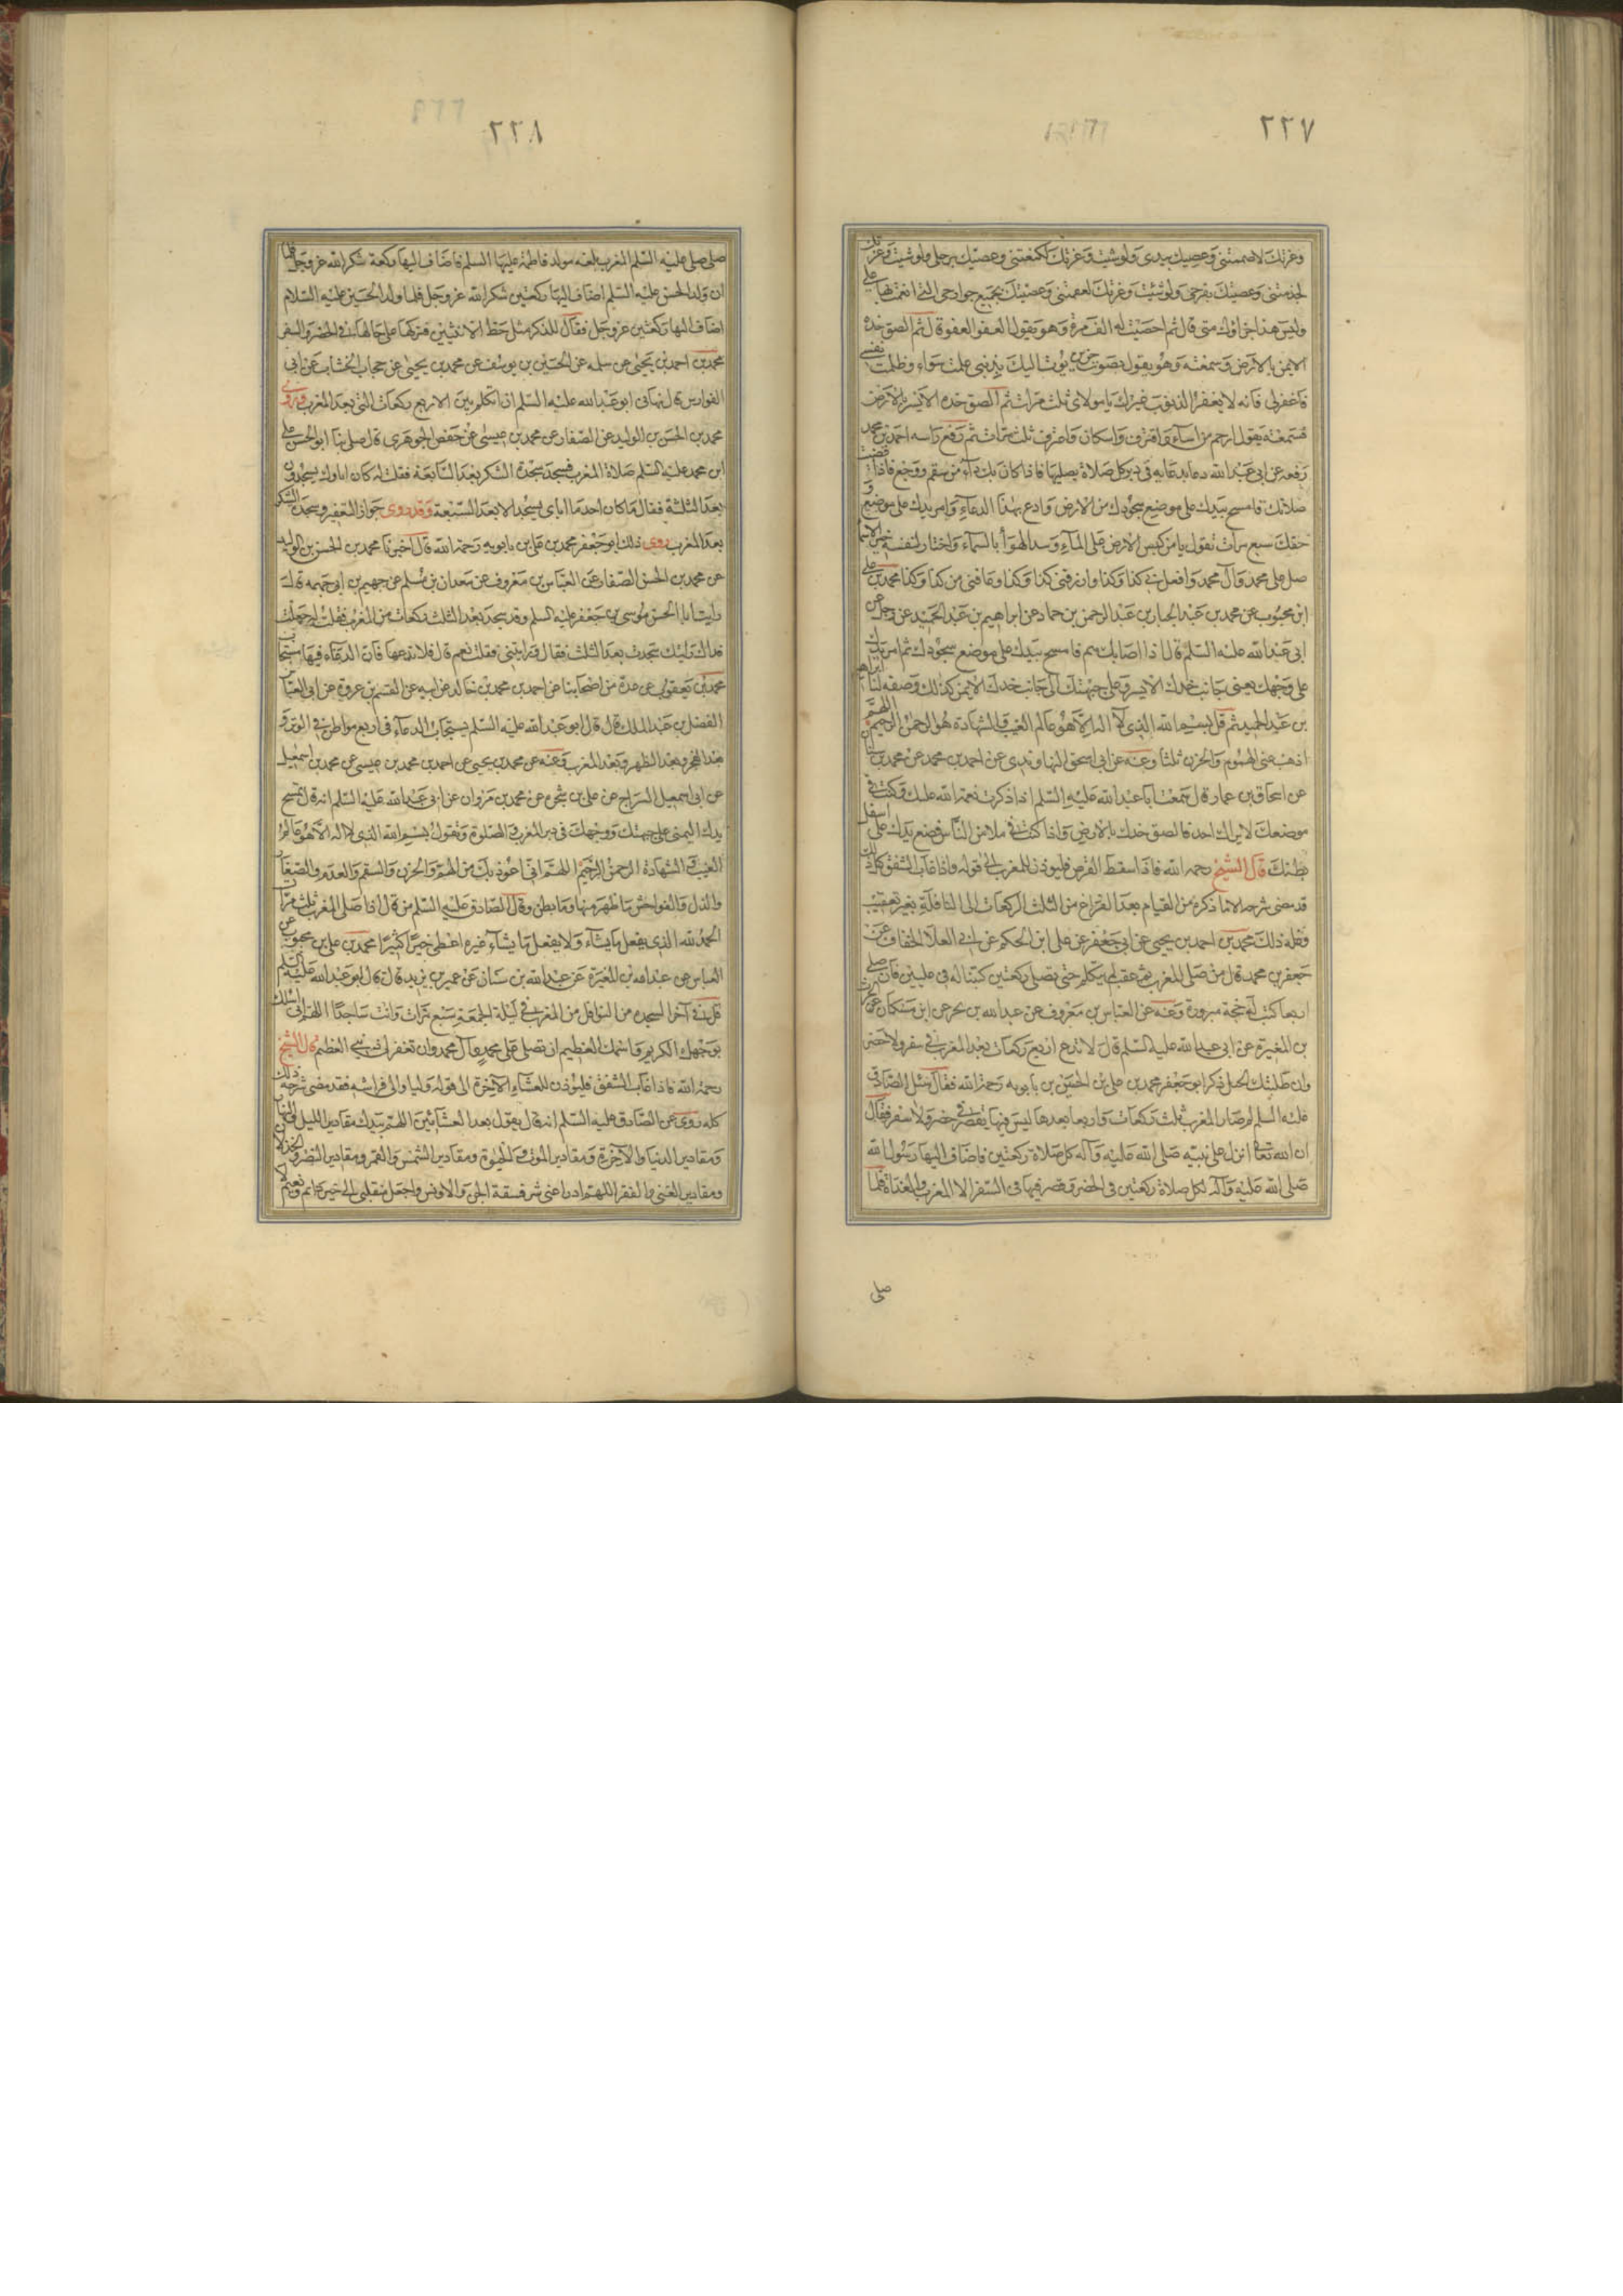 ٢٢٧
وعزتك لاصممتنى وعصيتك بيدى ولو شئت وعزتك لكنعتنى وعصيتك برجلى ولو شئت وعزتك
لجذمتنى وعصيتك بفرجى ولو شئت وعزتك لعقمتنى وعصيتك بجميع جوارحى التى انعمت بها على
وليس هذا جزاؤك منى قال ثم احصيت له الف مرة وهو يقول العفو العفو قال ثم الصق خده
الايمن بالارض وسمعته وهو يقول بصوت حزين بؤت اليك بذنبى عملت سواء وظلمت نفسى
فاغفر لى فانه لا يغفر الذنوب غيرك يا مولاى ثلث مرات ثم الصق خده الايسر بالارض
فسمعته يقول ارحم من اساء واقترف واستكان واعترف ثلث مرات ثم رفع راسه احمد بن محمد
رفعه عن ابى عبد الله دعاء يدعا به فى دبر كل صلاة يصليها فاذا كان بك داء من سقم ووجع فاذا قضيت
صلاتك فامسح بيدك على موضع سجودك من الارض وادع بهذا الدعاء وامر بيدك على موضع و
جعك سبع مرات تقول يا من كبس الارض على الماء وسد الهوا بالسماء واختار لنفسه خير الاسما
صل على محمد وآل محمد وافعل بى كذا وكذا وارزقنى كذا وكذا وعافنى من كذا وكذا محمد بن على
ابن محبوب عن محمد بن عبد الجبار بن عبد الرحمن بن حماد عن ابراهيم بن عبد الحميد عن رجل عن
ابى عبد الله عليه السلم قال اذا اصابك هم فامسح بيدك على موضع سجودك ثم امر يدك
على وجهك يعنى بجانب خدك الايسر وعلى جبهتك الى جانب خدك الايمن كذلك وصفه لنا ابراهيم
بن عبد الحميد ثم قل بسم الله الذى لا اله الا هو عالم الغيب والشهادة هو الرحمن الرحيم اللهم
اذهب عنى الهموم والحزن ثلثا وعنه عن ابى اسحق النهاوندى عن احمد بن محمد عن محمد بن سنان
عن اسحاق بن عمار قال سمعت ابا عبد الله عليه السلم اذا ذكرت نعمة الله عليك وكنت فى
موضع لا يراك احد فالصق خدك بالارض واذا كنت فى ملا من الناس فضع يدك على اسفل
بطنك قال الشيخ رحمه الله فاذا سقط القرص فليوذن للمغرب الى قوله واذا غاب الشفق كل ذلك
قد مضى شرحه الا ما ذكره من القيام بعد الفراغ من الثلث الركعات الى النافلة بغير تعقيب
وفعله ذلك محمد بن احمد بن يحيى عن ابى جعفر عن على ابن الحكم عن ابى العلا الخفاف عن
جعفر بن محمد قال من صلى المغرب ثم عقب لم يتكلم حتى يصلى ركعتين كتبتا له فى عليين فان صلى
اربعا كتب له حجة مبرورة وعنه عن العباس بن معروف عن عبد الله بن بحر عن ابن مسكان عن الحرث
بن المغيرة عن ابى عبد الله عليه السلم قال لا تدع اربع ركعات بعد المغرب فى سفر ولا حضر
وان طلبتك الخيل ذكر ابو جعفر محمد بن على بن الحسين بن بابويه رحمة الله فقال سئل الصادق
عليه السلم لم صار المغرب ثلث ركعات واربعا بعدها ليس فيها تقصير فى حضر ولا سفر فقال
ان الله تعالى انزل على نبيه صلى الله عليه وآله كل صلاة ركعتين فاضاف اليها رسول الله
صلى الله عليه وآله لكل صلاة ركعتين فى الحضر وقصر فيها فى السفر الا المغرب والغداة فلما
صلى
٢٢٨
صلى صلى عليه السلم المغرب بلغه مولد فاطمة عليها السلم فاضاف اليها ركعة شكرا لله عز وجل فلما
ان ولد الحسن عليه السلم اضاف اليها ركعتين شكرا لله عز وجل فلما ولد الحسين عليه السلام
اضاف اليها ركعتين عز وجل فقال للذكر مثل حظ الانثيين فتركها على حالها فى الحضر والسفر
محمد بن احمد بن يحيى عن سلمه عن الحسين بن يوسف عن محمد بن يحيى عن حجاب الخشاب عن ابى
الفوارس قال نهانى ابو عبد الله عليه السلم ان اتكلم بين الاربع ركعات التى بعد المغرب وروى
محمد بن الحسن بن الوليد عن الصفار عن محمد بن عيسى عن حفص الجوهرى قال صلى بنا ابو الحسن على
ابن محمد عليه السلم صلاة المغرب فسجد سجدة الشكر بعد السابعة فقلت له كان اباؤك يسجدون
بعد الثلثة فقال ما كان احد من اباى يسجد الا بعد السبعة وقد روى جواز التعفير وسجدة الشكر
بعد المغرب روى ذلك ابو جعفر محمد بن على بن بابويه رحمة الله قال اخبرنا محمد بن الحسن بن الوليد
عن محمد بن الحسن الصفار عن العباس بن معروف عن سعدان بن مسلم عن جهيم بن ابى جهمه قال
رايت ابا الحسن موسى بن جعفر عليه السلم وقد سجد بعد الثلث ركعات من المغرب فقلت له جعلت
فداك رايتك سجدت بعد الثلث فقال ورايتنى فقلت نعم قال فلا تدعها فان الدعاء فيها مستجاب
محمد بن يعقوب عن عدة من اصحابنا عن احمد بن محمد بن خالد عن ابيه عن القسم بن عروة عن ابى العباس
الفضل بن عبد الملك قال قال ابو عبد الله عليه السلم يستجاب الدعاء فى اربع مواطن فى الوتر و
بعد الفجر وبعد الظهر وبعد المغرب وعنه عن محمد بن يحيى عن احمد بن محمد بن عيسى عن محمد بن اسمعيل
عن ابى اسمعيل السراج عن على بن شجرة عن محمد بن مروان عن ابى عبد الله عليه السلم انه قال تمسح
يدك اليمنى على جبهتك ووجهك فى دبر المغرب والصلوة وتقول بسم الله الذى لا اله الا هو عالم
الغيب والشهادة الرحمن الرحيم اللهم انى اعوذ بك من الهم والحزن والسقم والعدم والصغار
والذل والفواحش ما ظهر منها وما بطن وقال الصادق عليه السلم من قال اذا صلى المغرب ثلث مرات
الحمد لله الذى يفعل ما يشاء ولا يفعل ما يشاء غيره اعطى خيرا كثيرا محمد بن على بن محبوب عن
العباس عن عبد الله بن المغيرة عن عبد الله بن سنان عن عمر بن يزيد قال قال ابو عبد الله عليه السلم
قل فى آخر السجدة من النوافل من المغرب فى ليلة الجمعة سبع مرات وانت ساجد اللهم انى اسئلك
بوجهك الكريم واسمك العظيم ان تصلى على محمد وآل محمد وان تغفر لى ذنبى العظيم قال الشيخ
رحمة الله فاذا غاب الشفق فليؤذن للعشاء الآخرة الى قوله وليا والى فراشه فقد مضى شرحه ذلك
كله روى عن الصادق عليه السلم انه قال يقول بعد العشائين اللهم بيدك مقادير الليل والنهار
ومقادير الدنيا والآخرة ومقادير الموت والحيوة ومقادير الشمس والقمر ومقادير النصر والخذلان
ومقادير الغنى والفقر اللهم ادرا عنى شر فسقة الجن والانس واجعل منقلبى الى خير دائم ونعيم لا